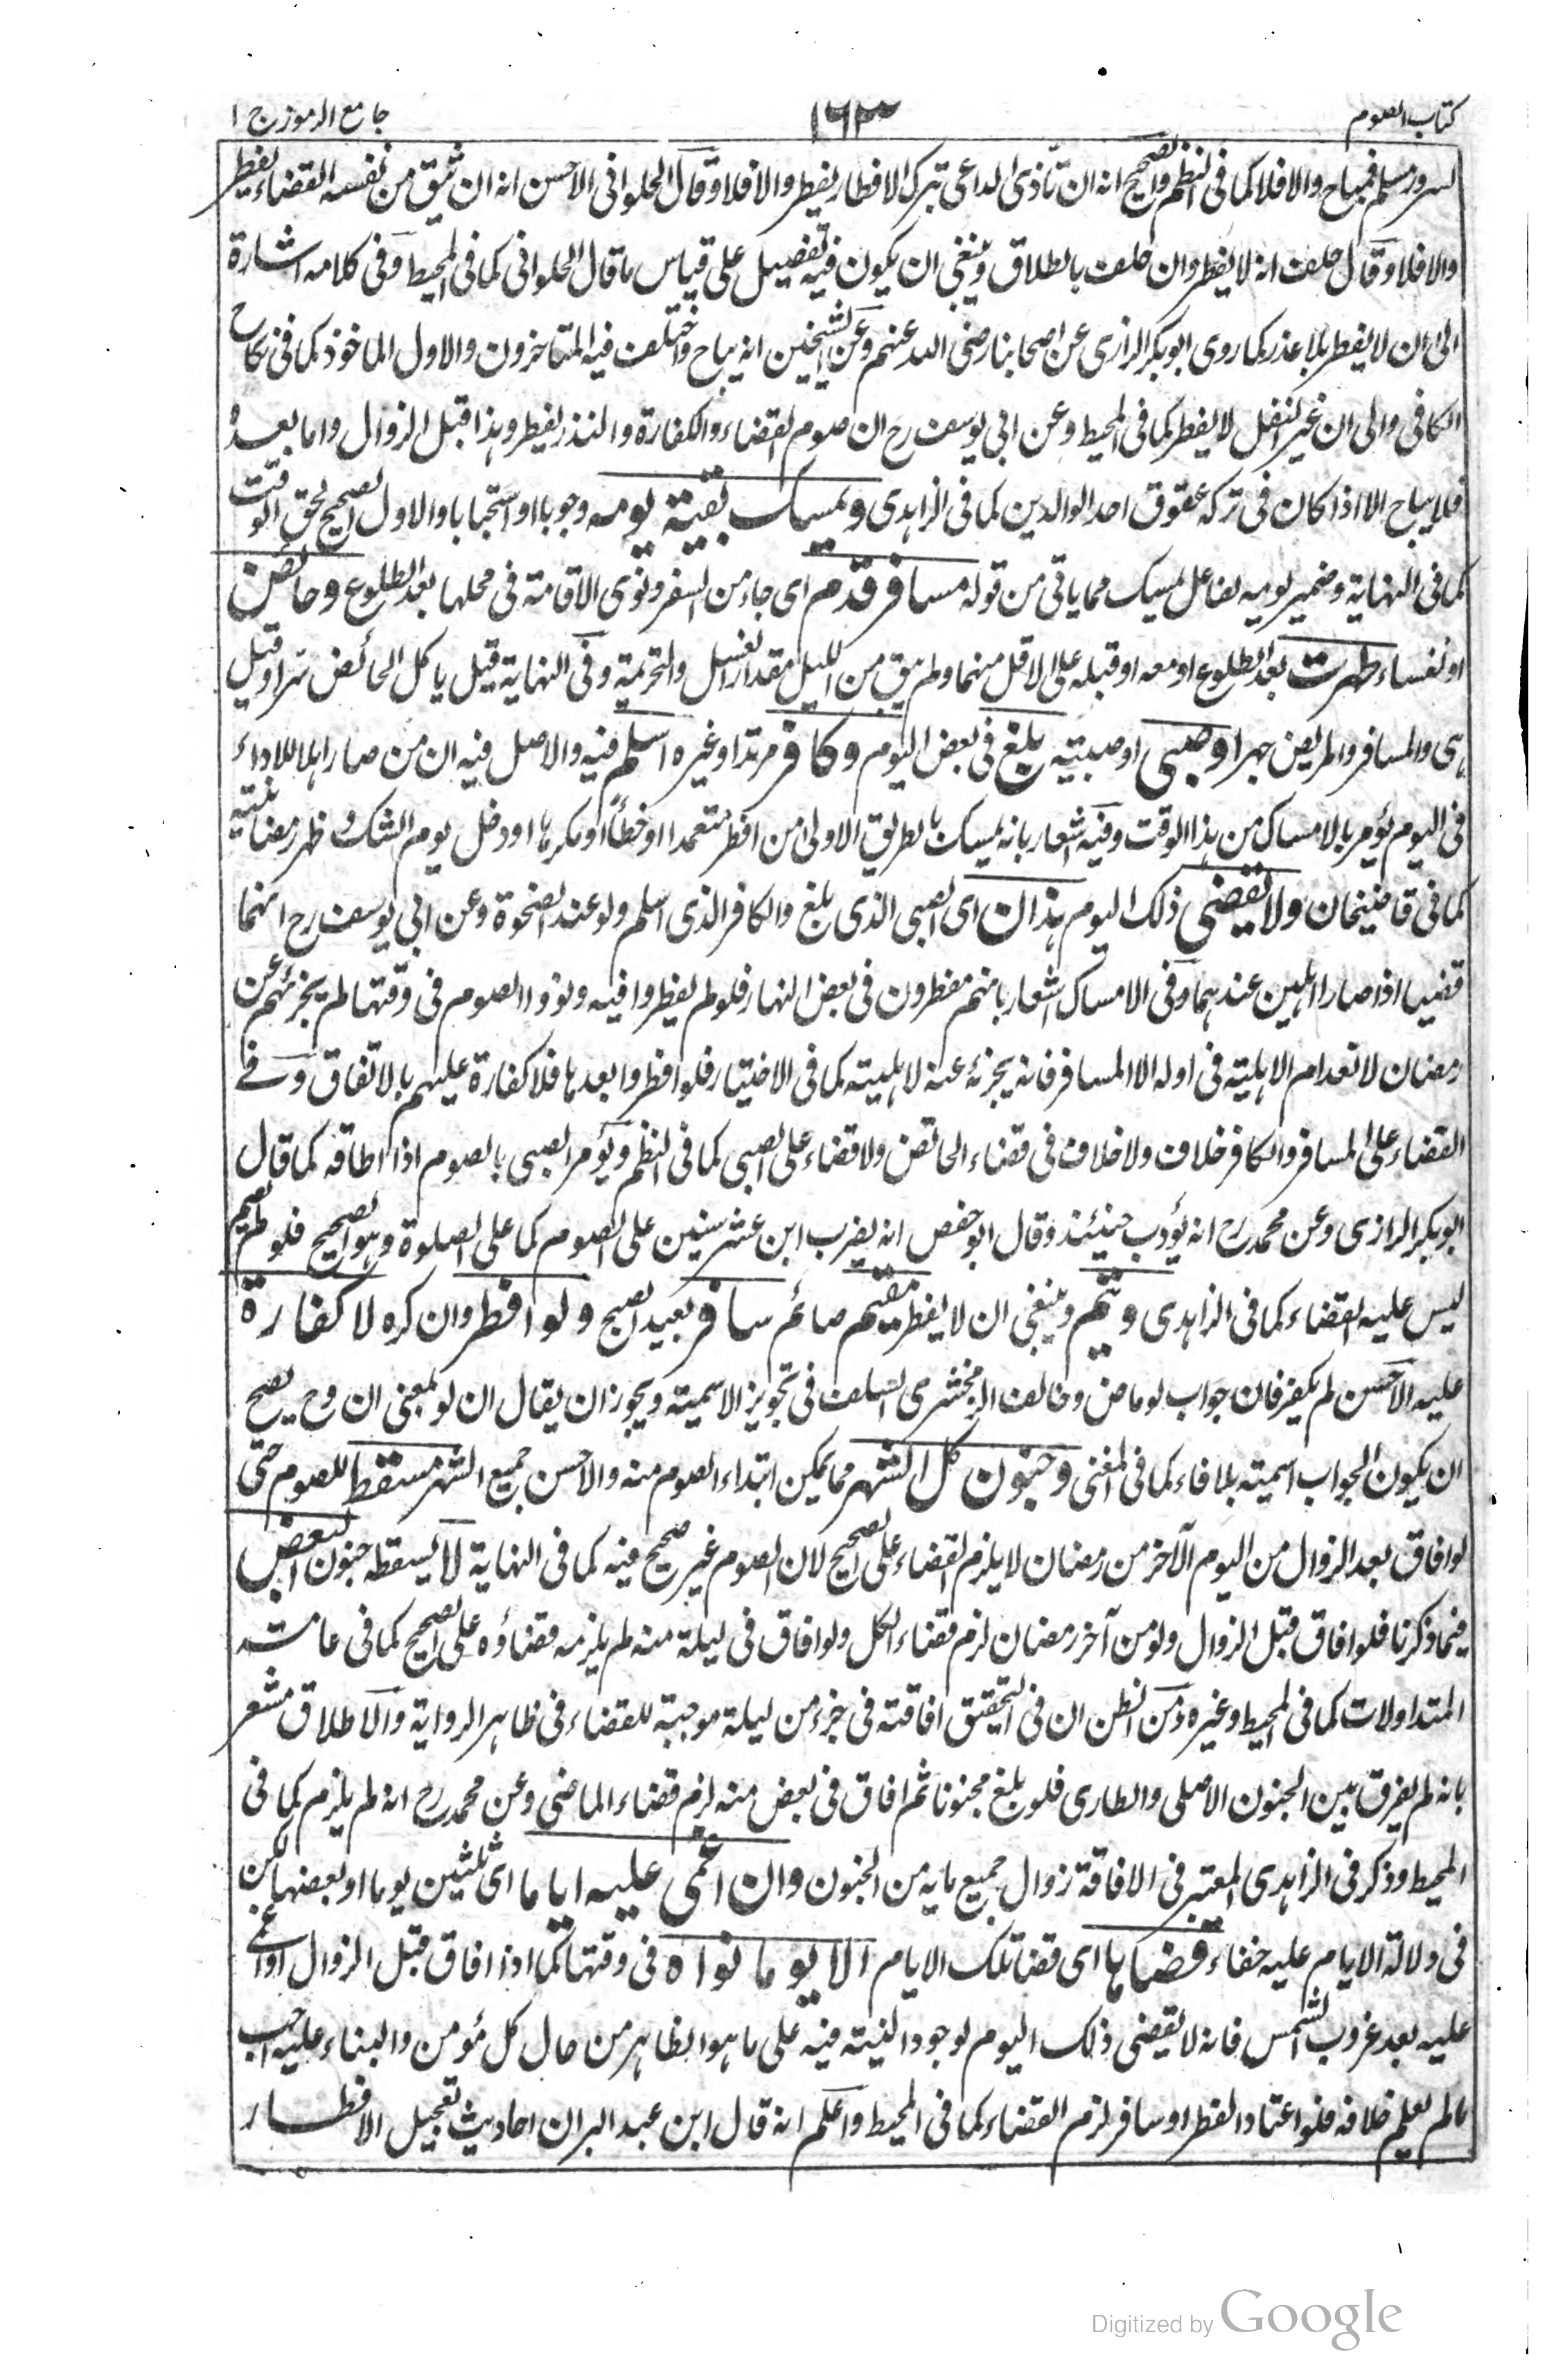 كتاب الصوم ١٦٣ جامع الرموز ج ١
لسرور مسلم فمباح والا فلا كما فى النظم والصحيح انه ان تأذى الداعى بترك الافطار يفطر والا فلا وقال الحلوانى الاحسن انه ان يثق من نفسه القضاء يفطر
والا فلا وقال خلف انه لا يفطر وان حلف بالطلاق وينبغى ان يكون فيه تفصيل على قياس ما قال الحلوانى كما فى المحيط وفى كلامه اشارة
الى ان لا يفطر بلا عذر كما روى ابو بكر الرازى عن اصحابنا رضى الله عنهم وعن الشيخين انه يباح واختلف فيه المتاخرون والاول الماخوذ كما فى نكاح
الكافى والى ان غير النفل لا يفطر كما فى المحيط وعن ابى يوسف رح ان صوم القضاء والكفارة والنذر يفطر وهذا قبل الزوال واما بعده
فلا يباح الا اذا كان فى تركه عقوق احد الوالدين كما فى الزاهدى ويمسك بقية يومه وجوبا او استحبابا والاول الصحيح لحق الوقت
كما فى النهاية وضمير يومه لفاعل يمسك مما ياتى من قوله مسافر قدم اى جاء من السفر ونوى الاقامة فى محلها بعد الطلوع وحائض
او نفساء طهرت بعد الطلوع او معه او قبله على الاقل منهما ولم يبق من الليل مقدار الغسل والتحريمة وفى النهاية قيل ياكل الحائض سرا وقيل
هى والمسافر والمريض جهرا وصبى او صبية بلغ فى بعض اليوم وكافر مرتدا وغيره اسلم فيه والاصل فيه ان من صار اهلا للاداء
فى اليوم يؤمر بالامساك من هذا الوقت وفيه اشعار بانه يمسك بالطريق الاولى من افطر متعمدا او خطأ او مكرها او دخل يوم الشك وظهر رمضانيته
كما فى قاضيخان ولا يقضى ذلك اليوم هذان اى الصبى الذى بلغ والكافر الذى اسلم ولو عند الضحوة وعن ابى يوسف رح انهما
قضيا اذا صارا اهلين عندهما وفى الامساك اشعار بانهم مفطرون فى بعض النهار فلو لم يفطروا فيه ونووا الصوم فى وقتها لم يجزئهم عن
رمضان لانعدام الاهلية فى اوله الا المسافر فانه يجزئه عنه لاهليته كما فى الاختيار فلو افطروا بعدها فلا كفارة عليهم بالاتفاق وفے
القضاء على المسافر والكافر خلاف ولا خلاف فى قضاء الحائض ولا قضاء على الصبى كما فى النظم ويؤمر الصبى بالصوم اذا اطاقه كما قال
ابو بكر الرازى وعن محمد رح انه يؤدب حينئذ وقال ابو حفص انه يضرب ابن عشر سنين على الصوم كما على الصلوة وهو الصحيح فلو لم يصم
ليس عليه القضاء كما فى الزاهدى ويتم وينبغى ان لا يفطر مقيم صائم سافر بعيد الصبح ولو افطر وان كره لا كفارة
عليه الاحسن لم يكفر فان جواب لو ماض وخالف الزمخشرى السلف فى تجويز الاسمية ويجوز ان يقال ان لو بمعنى ان وح يصح
ان يكون الجواب اسمية بلا فاء كما فى المغنى وجنون كل الشهر مما يمكن ابتداء الصوم منه والاحسن جميع الشهر مسقط للصوم حتى
لو افاق بعد الزوال من اليوم الآخر من رمضان لا يلزم القضاء على الصحيح لان الصوم غير صحيح فيه كما فى النهاية لا يسقطه جنون البعض
فيما ذكرنا فلو افاق قبل الزوال ولو من آخر رمضان لزم قضاء الكل ولو افاق فى ليلة منه لم يلزمه قضاؤه على الصحيح كما فى عامة
المتداولات كما فى المحيط وغيره ومن الظن ان فى التحقيق افاقته فى جزء من ليلة موجبة للقضاء فى ظاهر الرواية والاطلاق مشعر
بانه لم يفرق بين الجنون الاصلى والطارى فلو بلغ مجنونا ثم افاق فى بعض منه لزم قضاء الماضى وعن محمد رح انه لم يلزم كما فى
المحيط وذكر فى الزاهدى المعتبر فى الافاقة زوال جميع ما به من الجنون وان اغمى عليه اياما اى ثلثين يوما او بعضها لكن
فى دلالة الايام عليه خفاء قضاها اى قضا تلك الايام الا يوما نواه فى وقتها كما اذا افاق قبل الزوال او اغمى
عليه بعد غروب الشمس فانه لا يقضى ذلك اليوم لوجود النية فيه على ما هو الظاهر من حال كل مؤمن والبناء عليه احب
ما لم يعلم خلافه فلو اعتاد الفطر او سافر لزم القضاء كما فى المحيط واعلم انه قال ابن عبد البر ان احاديث تعجيل الافطار
Digitized by Google